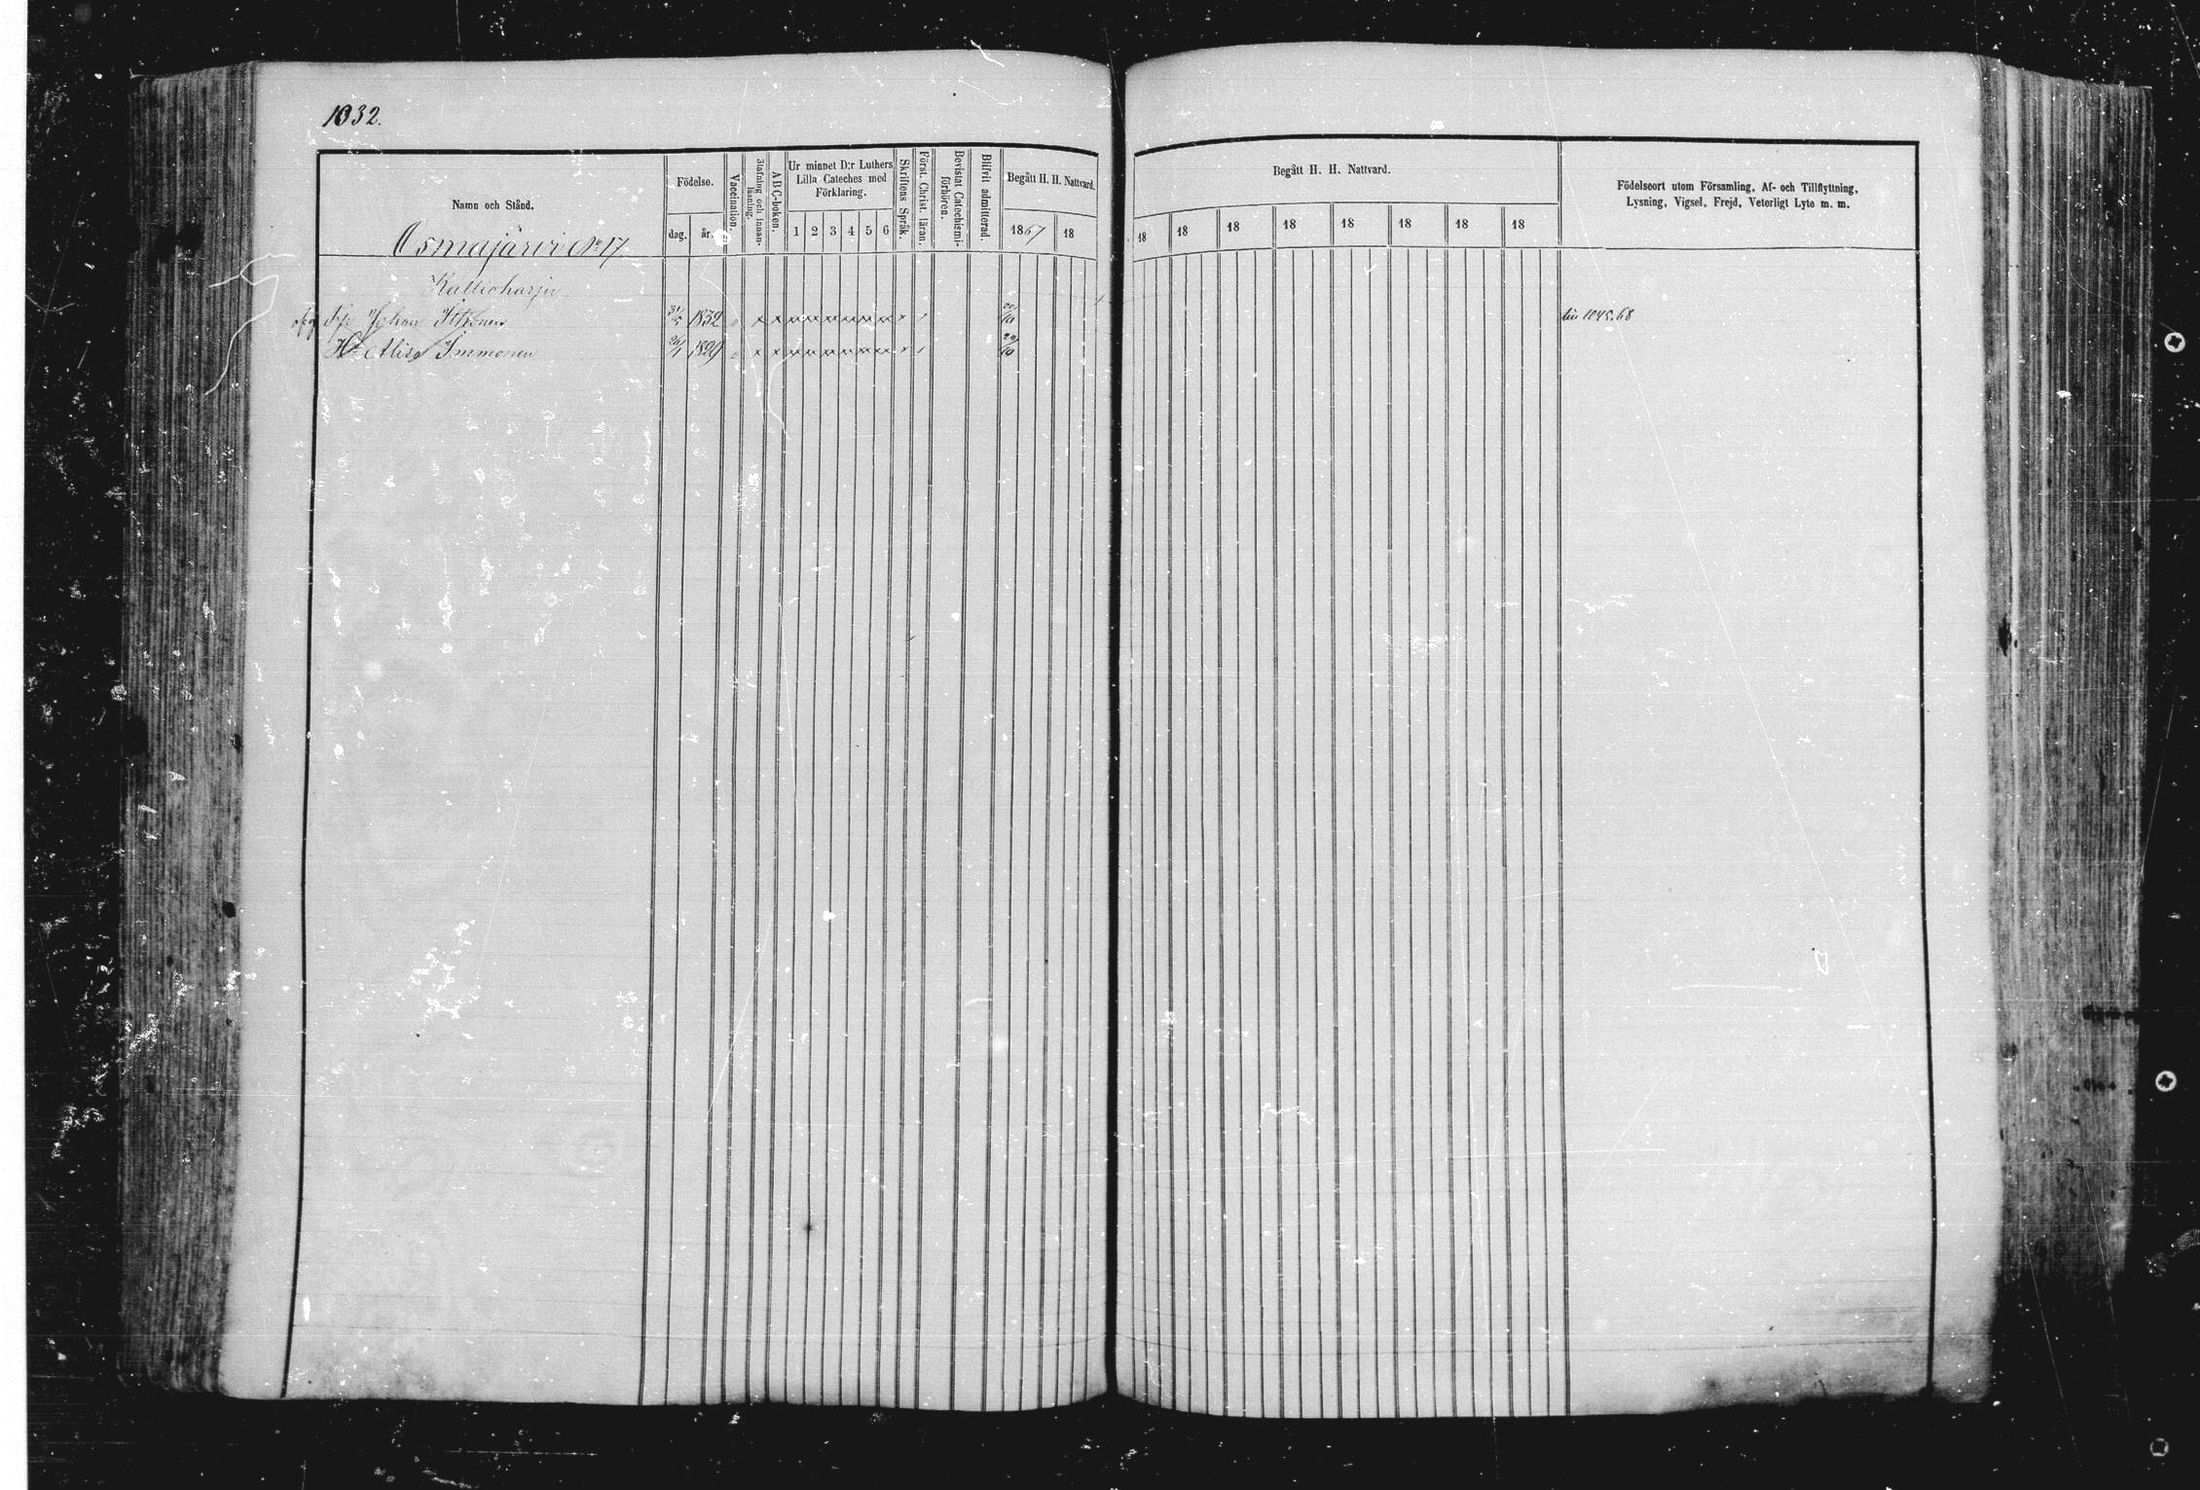 1032.
Namn och Stånd.
Osmajärvi No 17
Födelse.
dag. år.
Vaccination.
Stafning och innan-läsning.
ABC-boken.
Ur minnet D:r Luthers
Lilla Cateches med
Förklaring.
1 2 3 4 5 6
Skriftens Språk.
Först. Christ. läran.
Bevistat Catechismi-förhören.
Blifvit admitterad.
Begått H. H. Nattvard.
1867 18
Begått H. H. Nattvard.
18 18 18 18 18 18 18 18
Födelseort utom Församling, Af- och Tillflyttning,
Lysning, Vigsel, Frejd, Veterligt Lyte m. m.
Kallioharju
Johan Itkonen 31/5 1832 x x x x 20/10 1045.68
Hu Alisa Immonen 1829 x x x 20/10